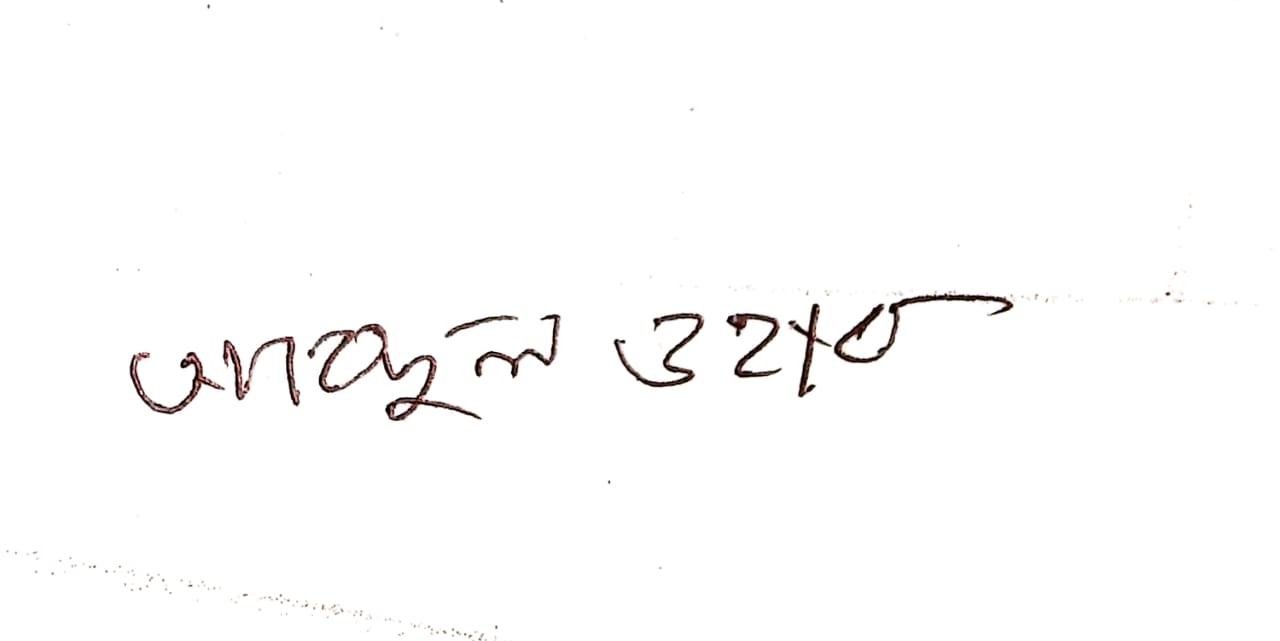 আবদুল ওহাব